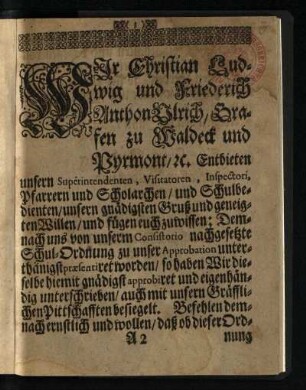 1
WIr Christian Lud-
wig und Friederich
Anthon Vlrich/Gra-
fen zu Waldeck und
Pyrmont/ ꝛc. Entbieten
unsern Superintendenten, Visitatoren, Inspectori,
Pfarrern und Scholarchen/ und Schulbe-
dienten/unsern gnädigsten Gruß und geneig-
ten Willen/ und fügen euch zuwissen: Dem-
nach uns von unserm Consistorio nachgesetzte
Schul-Ordnung zu unser Approbation unter-
thänigst præsentiret worden/ so haben Wir die-
selbe hiemit gnädigst approbiret und eigenhän-
dig unterschrieben/ auch mit unsern Gräffli-
chen Pittschafften besiegelt. Befehlen dem-
nach ernstlich und wollen/ daß ob dieser Ord-
A 2 nung